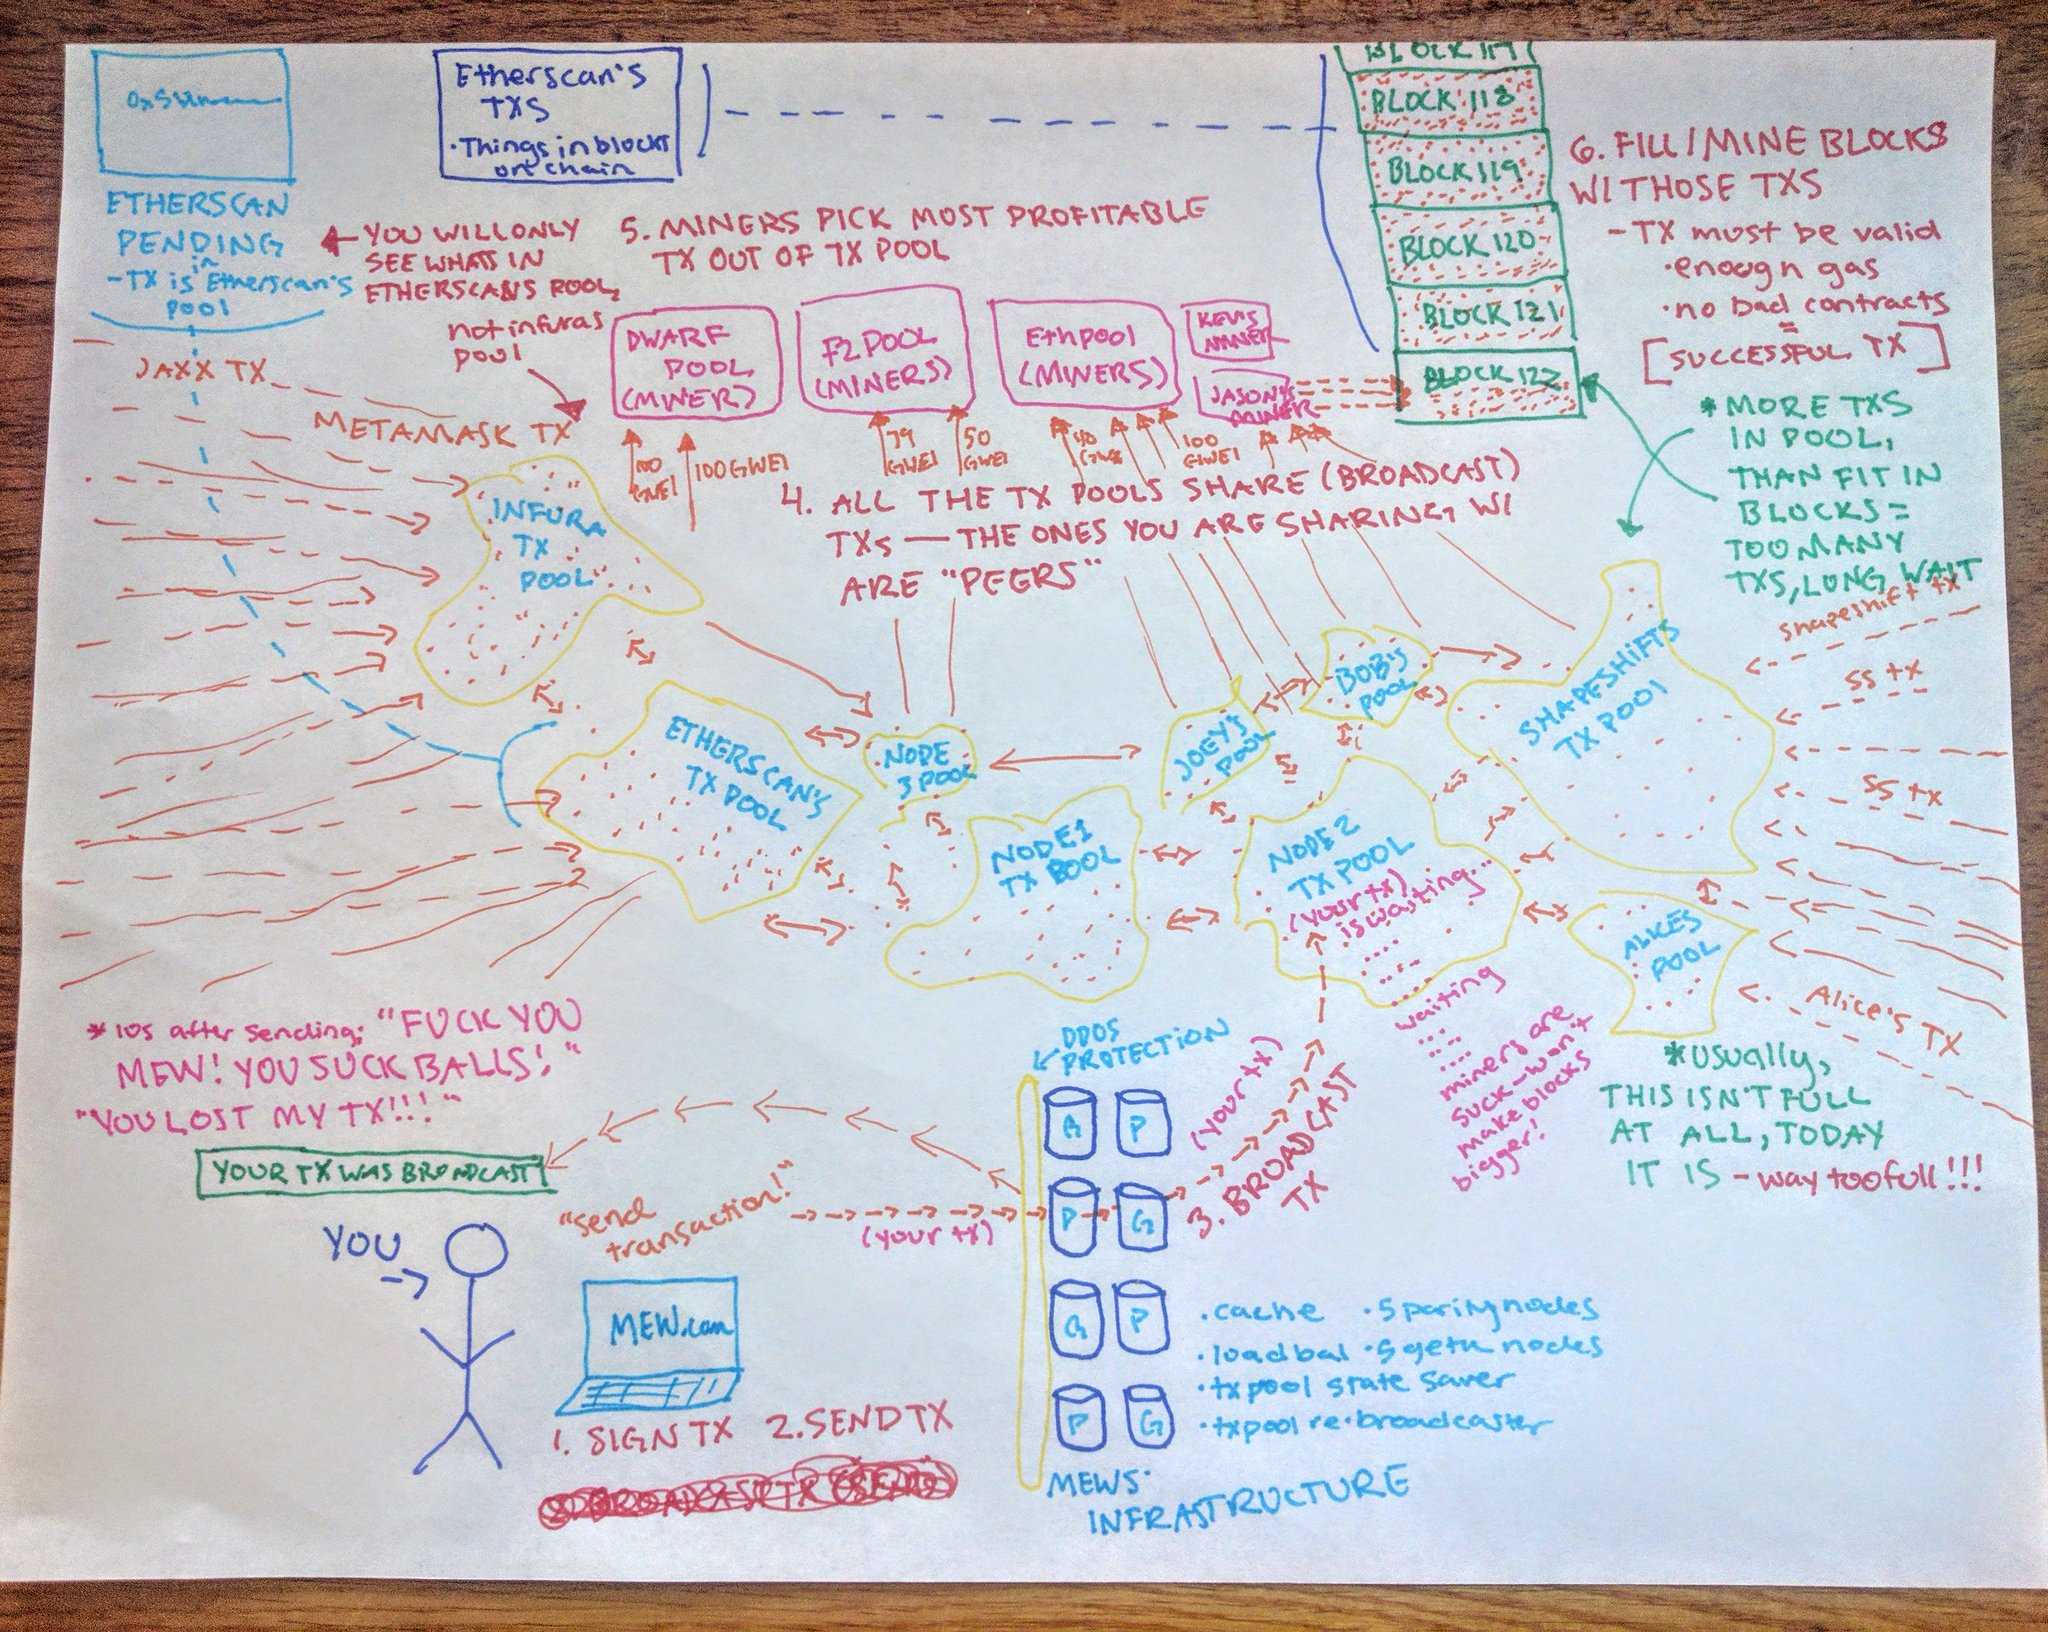 Etherscan's
TXS
· Things in blocks
on chain
ETHERSCAN
PENDING
- TX is in Etherscan's
pool
← YOU WILL ONLY
SEE WHATS IN
ETHERSCANS POOL,
not infuras
pool
5. MINERS PICK MOST PROFITABLE
TX OUT OF TX POOL
BLOCK 117
BLOCK 118
BLOCK 119
BLOCK 120
BLOCK 121
BLOCK 122
6. FILL/MINE BLOCKS
W/ THOSE TXS
- TX must be valid
· enough gas
· no bad contracts
=
[SUCCESSFUL TX]
* MORE TXS
IN POOL,
THAN FIT IN
BLOCKS =
TOO MANY
TXS, LONG WAIT
DWARF
POOL
(MINER)
F2POOL
(MINERS)
Ethpool
(MINERS)
KEV'S
MINER
JASON'S
MINER
JAXX TX
METAMASK TX
100
GWEI
100 GWEI
79
GWEI
50
GWEI
40
GWEI
100
GWEI
4. ALL THE TX POOLS SHARE (BROADCAST)
TXs — THE ONES YOU ARE SHARING W/
ARE "PEERS"
INFURA
TX
POOL
ETHERSCAN'S
TX POOL
NODE
3 POOL
NODE 1
TX POOL
JOEY'S
POOL
BOB'S
POOL
NODE 2
TX POOL
(your tx)
is waiting...
....
....
....
waiting
...
....
miners are
suck - won't
make blocks
bigger!
SHAPESHIFTS
TX POOL
shapeshift tx
SS tx
SS tx
ALICES
POOL
Alice's TX
* usually,
THIS ISN'T FULL
AT ALL, TODAY
IT IS - way too full!!!
* 10s after sending: "FUCK YOU
MEW! YOU SUCK BALLS!"
"YOU LOST MY TX!!!"
YOUR TX WAS BROADCAST
YOU
"send
transaction!"
(your tx)
MEW.com
1. SIGN TX 2. SEND TX
DDOS
PROTECTION
G P
P G
G P
P G
(your tx)
3. BROADCAST
TX
· cache · 5 parity nodes
· load bal · 5 geth nodes
· txpool state saver
· txpool re-broadcaster
MEWS·
INFRASTRUCTURE